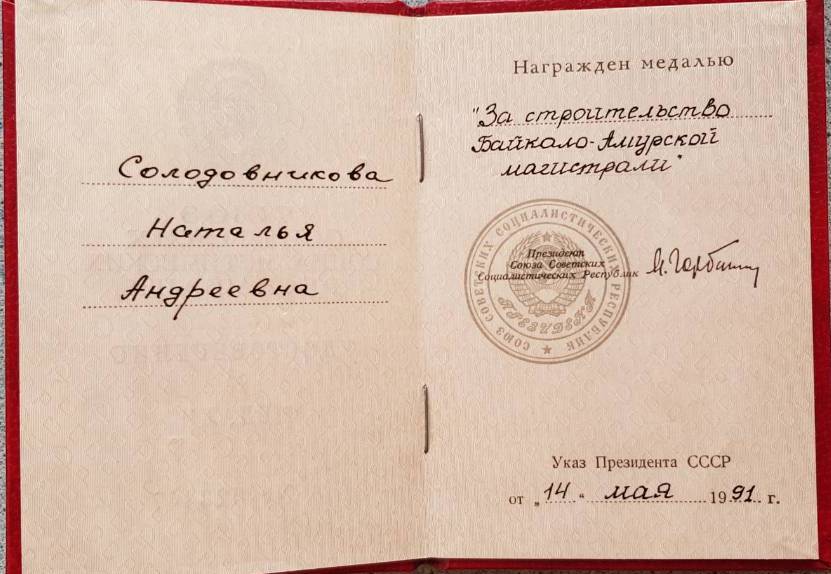 Солодовникова
Наталья
Андреевна
Награжден медалью
"За строительство
Байкало-Амурской
магистрали"
СОЮЗ СОВЕТСКИХ СОЦИАЛИСТИЧЕСКИХ РЕСПУБЛИК
ПРЕЗИДЕНТ
Президент
Союза Советских
Социалистических Республик
Указ Президента СССР
от „14 “ мая 1991 г.